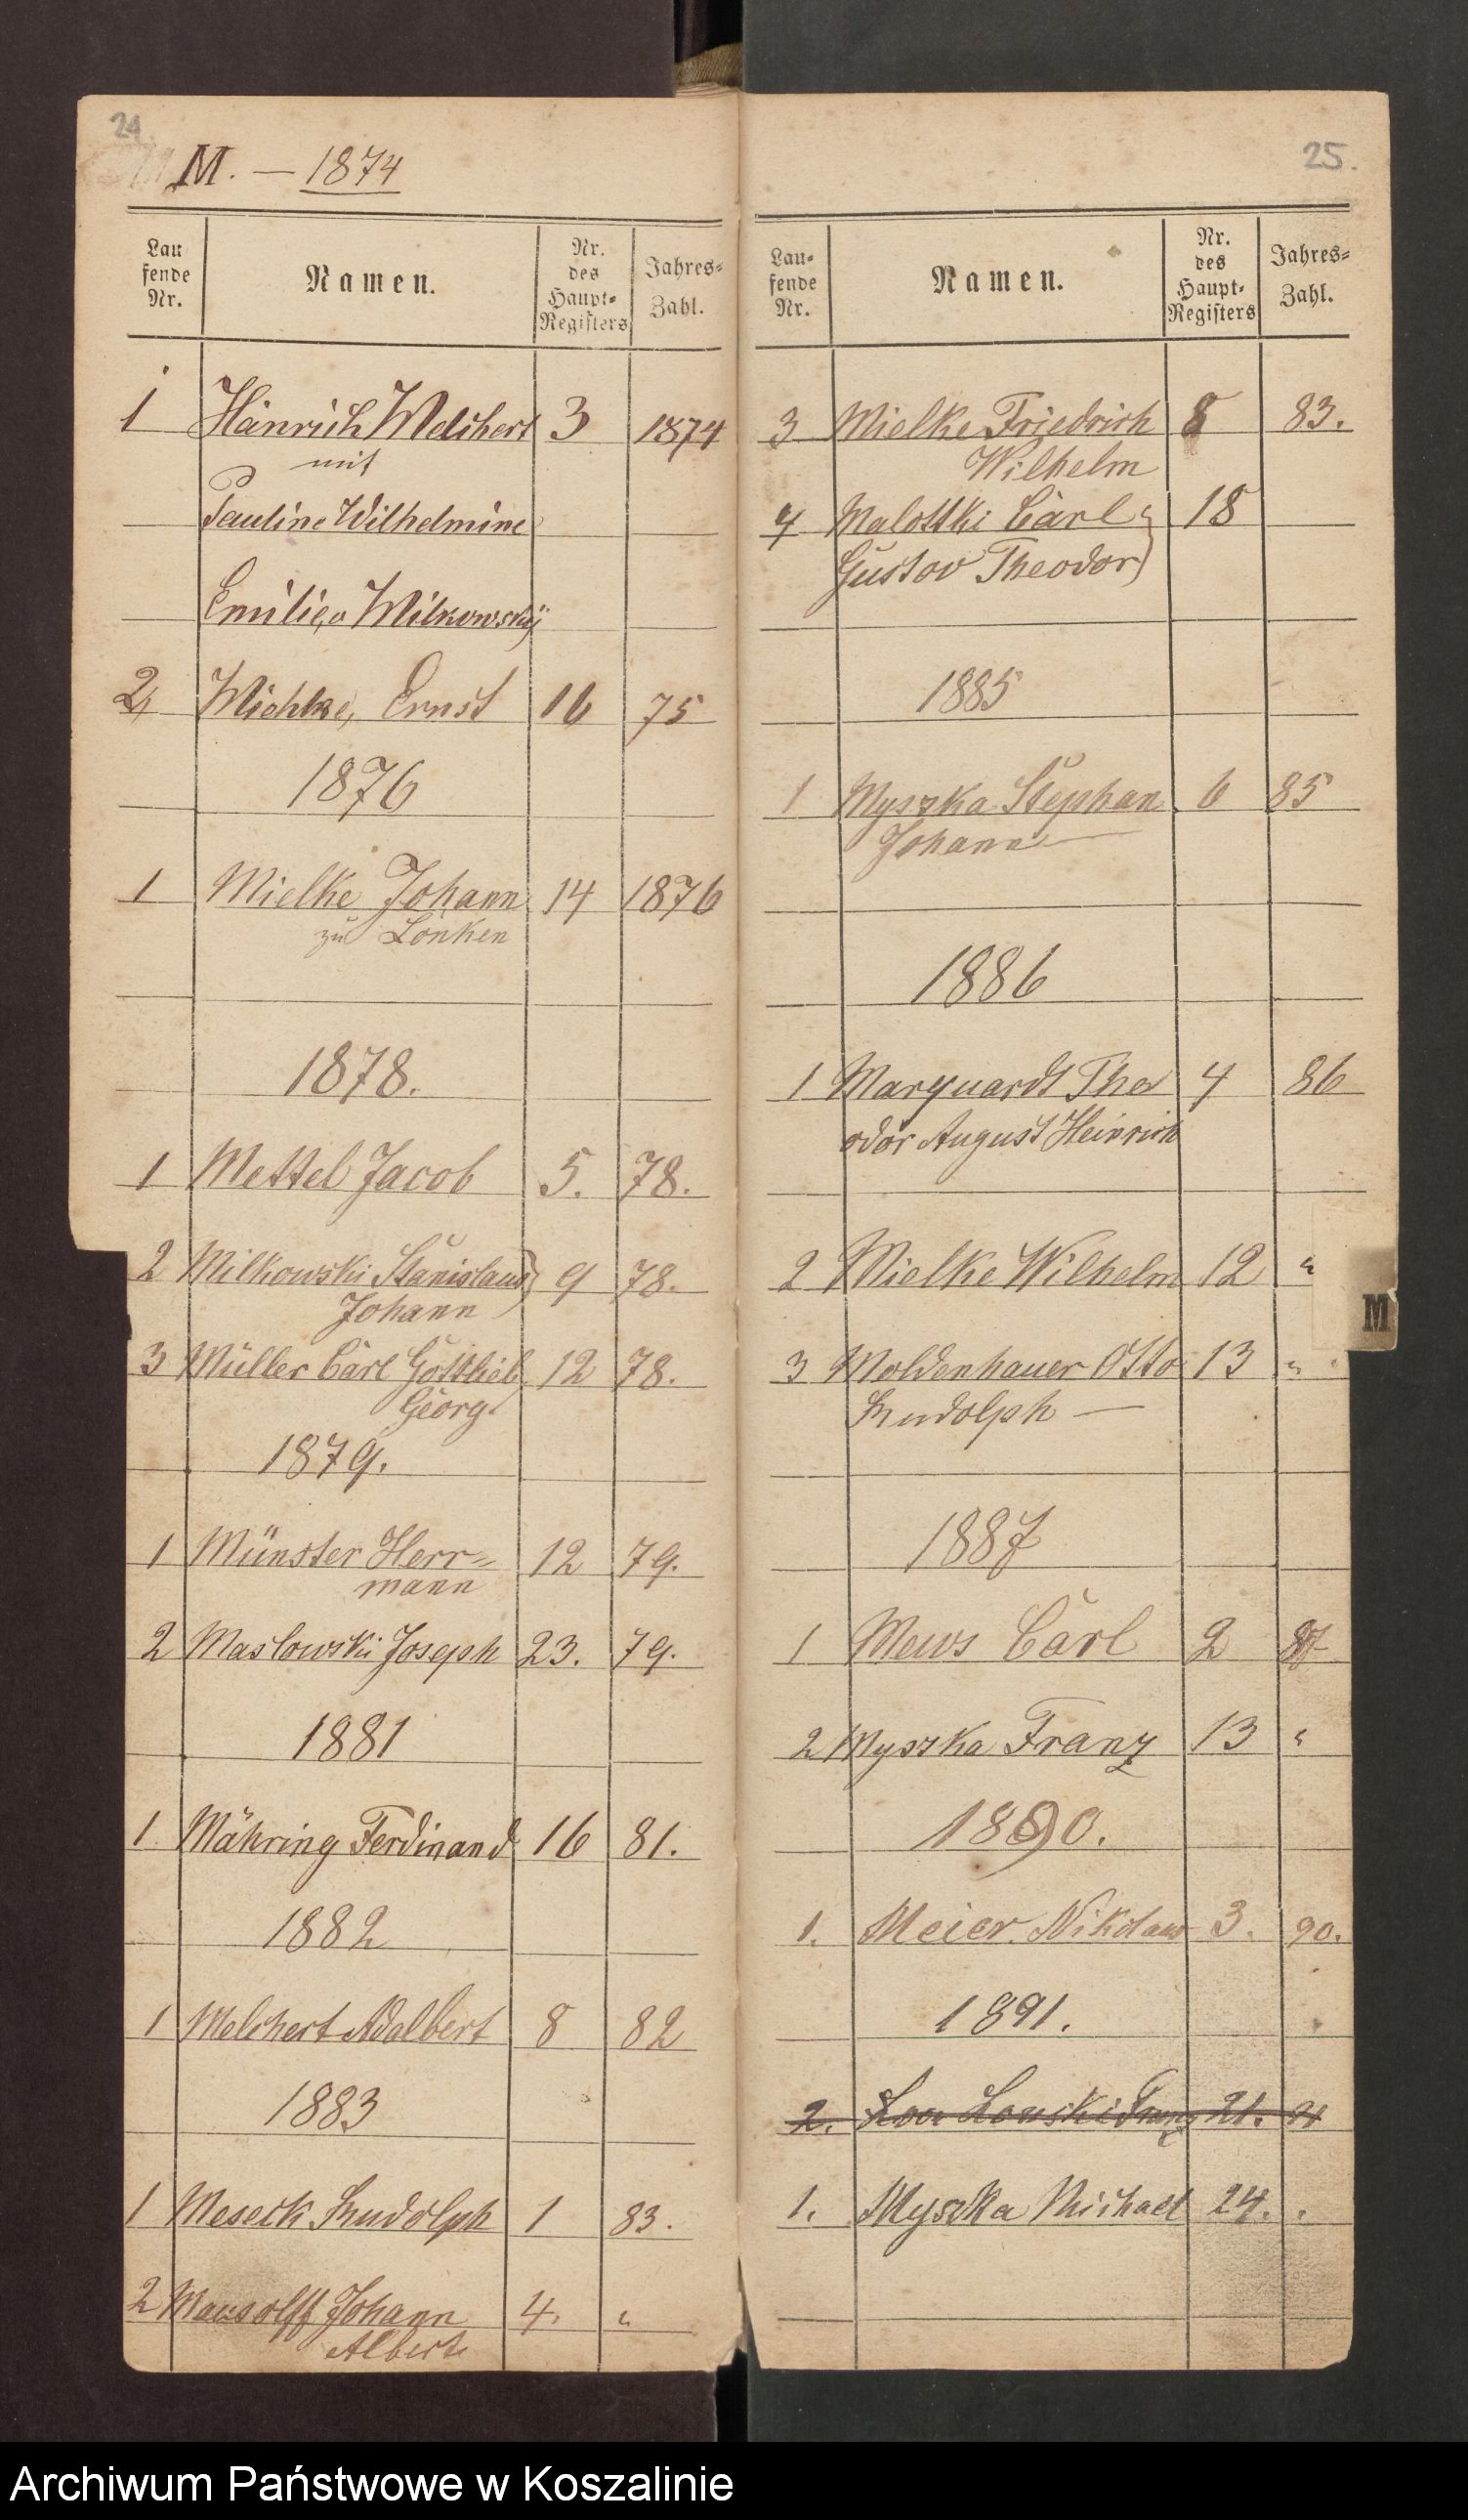 24.
M. — 1874
Lau
fende
Nr.
Namen.
Nr.
des
Haupt-
Registers
Jahres-
Zahl.
1 Hänrich Melchert 3 1874
mit
Pauline Wilhelmine
Emilie, v Milkowskÿ
2, Michke, Ernst 16 75
1876
1 Mielke Johann 14 1876
zu Lonken
1878.
1 Mettel Jacob 5. 78.
2 Milkowski Stanislaus 9 78.
Johann
3 Müller Carl Gottlieb 12 78.
Georg.
1879.
1 Münster Herr= 12 79.
mann
2 Maslowski Joseph 23. 79.
1881
1 Mähring Ferdinand 16 81.
1882
1 Melchert Adalbert 8 82
1883
1 Meseck Rudolph 1 83.
2 Mausolff Johann 4. "
Albert
25.
Lau-
fende
Nr.
Namen.
Nr.
des
Haupt-
Registers
Jahres-
Zahl.
3 Mielke Friedrich 8 83.
Wilhelm
4 Malottki Carl 18
Gustav Theodor
1885
1 Myszka Stephan 6 85
Johann —
1886
1 Marquardt The 4 86
odor August Heinrich
2 Mielke Wilhelm 12 "
M
3 Moldenhauer Otto 13 "
Rudolph —
1887
1 Mews Carl 2 87
2 Myszka Franz 13 "
1890.
1. Meier Nikolaus 3. 90.
1891.
2. Lonski Franz 21. 91
1. Myszka Michael 24. .
Archiwum Państwowe w Koszalinie